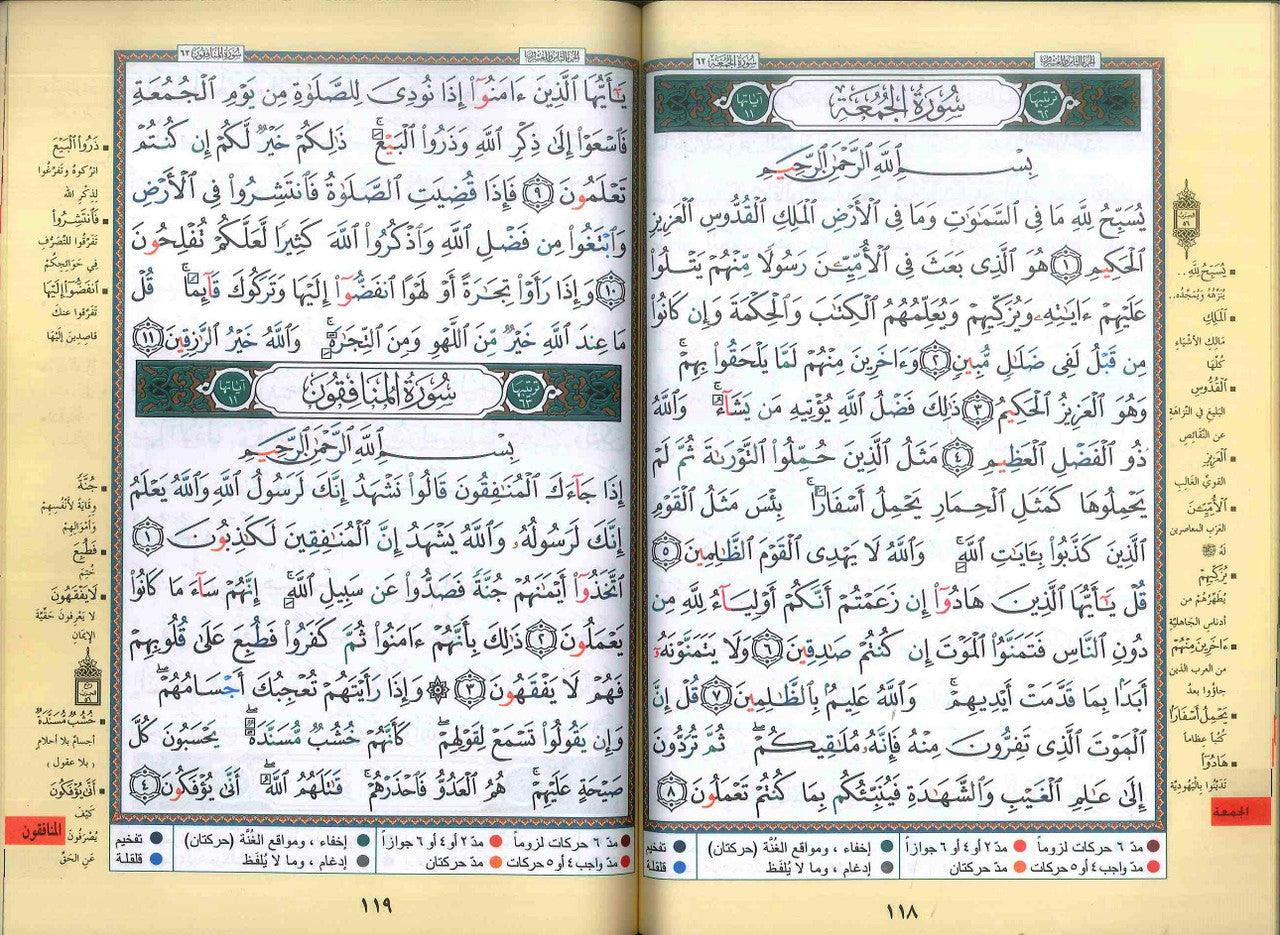 الجزء الثامن والعشرون
سورة الجمعة ٦٢
ترتيبها ٦٢ سُورَةُ الْجُمُعَةِ آياتها ١١
بِسْمِ اللَّهِ الرَّحْمَٰنِ الرَّحِيمِ
يُسَبِّحُ لِلَّهِ مَا فِى السَّمَٰوَٰتِ وَمَا فِى الْأَرْضِ الْمَلِكِ الْقُدُّوسِ الْعَزِيزِ
الْحَكِيمِ ١ هُوَ الَّذِى بَعَثَ فِى الْأُمِّيِّۦنَ رَسُولًا مِّنْهُمْ يَتْلُوا۟
عَلَيْهِمْ ءَايَٰتِهِۦ وَيُزَكِّيهِمْ وَيُعَلِّمُهُمُ الْكِتَٰبَ وَالْحِكْمَةَ وَإِن كَانُوا۟
مِن قَبْلُ لَفِى ضَلَٰلٍ مُّبِينٍ ٢ وَءَاخَرِينَ مِنْهُمْ لَمَّا يَلْحَقُوا۟ بِهِمْ ۚ
وَهُوَ الْعَزِيزُ الْحَكِيمُ ٣ ذَٰلِكَ فَضْلُ اللَّهِ يُؤْتِيهِ مَن يَشَآءُ ۚ وَاللَّهُ
ذُو الْفَضْلِ الْعَظِيمِ ٤ مَثَلُ الَّذِينَ حُمِّلُوا۟ التَّوْرَىٰةَ ثُمَّ لَمْ
يَحْمِلُوهَا كَمَثَلِ الْحِمَارِ يَحْمِلُ أَسْفَارًۢا ۚ بِئْسَ مَثَلُ الْقَوْمِ
الَّذِينَ كَذَّبُوا۟ بِـَٔايَٰتِ اللَّهِ ۚ وَاللَّهُ لَا يَهْدِى الْقَوْمَ الظَّٰلِمِينَ ٥
قُلْ يَٰٓأَيُّهَا الَّذِينَ هَادُوٓا۟ إِن زَعَمْتُمْ أَنَّكُمْ أَوْلِيَآءُ لِلَّهِ مِن
دُونِ النَّاسِ فَتَمَنَّوُا۟ الْمَوْتَ إِن كُنتُمْ صَٰدِقِينَ ٦ وَلَا يَتَمَنَّوْنَهُۥٓ
أَبَدًۢا بِمَا قَدَّمَتْ أَيْدِيهِمْ ۚ وَاللَّهُ عَلِيمٌۢ بِالظَّٰلِمِينَ ٧ قُلْ إِنَّ
الْمَوْتَ الَّذِى تَفِرُّونَ مِنْهُ فَإِنَّهُۥ مُلَٰقِيكُمْ ۖ ثُمَّ تُرَدُّونَ
إِلَىٰ عَٰلِمِ الْغَيْبِ وَالشَّهَٰدَةِ فَيُنَبِّئُكُم بِمَا كُنتُمْ تَعْمَلُونَ ٨
يُسَبِّحُ لِلَّهِ..
يُنَزِّهُهُ ويُمَجِّدُه..
الْمَلِكِ
مَالِكِ الأشْيَاءِ
كُلِّهَا
الْقُدُّوسِ
البَليغِ في النَّزاهَةِ
عن النَّقائِصِ
الْعَزِيزِ
القَويِّ الغَالِبِ
الْأُمِّيِّۦنَ
العَرَب المعاصرين
له ﷺ
يُزَكِّيهِمْ
يُطَهِّرُهُمْ من
أدناسِ الجَاهليَّة
ءَاخَرِينَ مِنْهُمْ
من العرب الذين
جاؤُوا بعدُ
يَحْمِلُ أَسْفَارًا
كُتُباً عِظَاماً
هَادُوٓا۟
تَدَيَّنُوا باليَهُودِيَّة
الجمعة
مدّ ٦ حركات لزوماً مدّ ٢ أو ٤ أو ٦ جوازاً إخفاء ، ومواقع الغُنَّة (حركتان) تفخيم
مدّ واجب ٤ أو ٥ حركات مدّ حركتان إدغام ، وما لا يُلفَظ قلقلة
١١٨
الجزء الثامن والعشرون
سورة المنافقون ٦٣
يَٰٓأَيُّهَا الَّذِينَ ءَامَنُوٓا۟ إِذَا نُودِىَ لِلصَّلَوٰةِ مِن يَوْمِ الْجُمُعَةِ
فَاسْعَوْا۟ إِلَىٰ ذِكْرِ اللَّهِ وَذَرُوا۟ الْبَيْعَ ۚ ذَٰلِكُمْ خَيْرٌ لَّكُمْ إِن كُنتُمْ
تَعْلَمُونَ ٩ فَإِذَا قُضِيَتِ الصَّلَوٰةُ فَانتَشِرُوا۟ فِى الْأَرْضِ
وَابْتَغُوا۟ مِن فَضْلِ اللَّهِ وَاذْكُرُوا۟ اللَّهَ كَثِيرًا لَّعَلَّكُمْ تُفْلِحُونَ
١٠ وَإِذَا رَأَوْا۟ تِجَٰرَةً أَوْ لَهْوًا انفَضُّوٓا۟ إِلَيْهَا وَتَرَكُوكَ قَآئِمًا ۚ قُلْ
مَا عِندَ اللَّهِ خَيْرٌ مِّنَ اللَّهْوِ وَمِنَ التِّجَٰرَةِ ۚ وَاللَّهُ خَيْرُ الرَّٰزِقِينَ ١١
ترتيبها ٦٣ سُورَةُ الْمُنَافِقُونَ آياتها ١١
بِسْمِ اللَّهِ الرَّحْمَٰنِ الرَّحِيمِ
إِذَا جَآءَكَ الْمُنَٰفِقُونَ قَالُوا۟ نَشْهَدُ إِنَّكَ لَرَسُولُ اللَّهِ وَاللَّهُ يَعْلَمُ
إِنَّكَ لَرَسُولُهُۥ وَاللَّهُ يَشْهَدُ إِنَّ الْمُنَٰفِقِينَ لَكَٰذِبُونَ ١
اتَّخَذُوٓا۟ أَيْمَٰنَهُمْ جُنَّةً فَصَدُّوا۟ عَن سَبِيلِ اللَّهِ ۚ إِنَّهُمْ سَآءَ مَا كَانُوا۟
يَعْمَلُونَ ٢ ذَٰلِكَ بِأَنَّهُمْ ءَامَنُوا۟ ثُمَّ كَفَرُوا۟ فَطُبِعَ عَلَىٰ قُلُوبِهِمْ
فَهُمْ لَا يَفْقَهُونَ ٣ ۞ وَإِذَا رَأَيْتَهُمْ تُعْجِبُكَ أَجْسَامُهُمْ ۖ
وَإِن يَقُولُوا۟ تَسْمَعْ لِقَوْلِهِمْ ۖ كَأَنَّهُمْ خُشُبٌ مُّسَنَّدَةٌ ۖ يَحْسَبُونَ كُلَّ
صَيْحَةٍ عَلَيْهِمْ ۚ هُمُ الْعَدُوُّ فَاحْذَرْهُمْ ۚ قَٰتَلَهُمُ اللَّهُ ۖ أَنَّىٰ يُؤْفَكُونَ ٤
ذَرُوا۟ الْبَيْعَ
اتْرُكوهُ وتَفَرَّغُوا
لِذِكْرِ الله
فَانتَشِرُوا۟
تَفَرَّقُوا لِلتَّصَرُّفِ
فِي حَوَائِجِكُمْ
انفَضُّوٓا۟ إِلَيْهَا
تَفَرَّقُوا عنكَ
قاصِدينَ إلَيْهَا
جُنَّةً
وِقَايَةً لأنْفُسِهِمْ
وَأمْوَالِهِمْ
فَطُبِعَ
خُتِمَ
لَا يَفْقَهُونَ
لا يَعْرِفونَ حَقِّيَّةَ
الإيمَانِ
خُشُبٌ مُّسَنَّدَةٌ
أجسامٌ بلا أحلامٍ
( بلا عقول )
أَنَّىٰ يُؤْفَكُونَ
كَيْفَ
يُصْرَفُونَ
عَنِ الحَقِّ
المنافقون
مدّ ٦ حركات لزوماً مدّ ٢ أو ٤ أو ٦ جوازاً إخفاء ، ومواقع الغُنَّة (حركتان) تفخيم
مدّ واجب ٤ أو ٥ حركات مدّ حركتان إدغام ، وما لا يُلفَظ قلقلة
١١٩